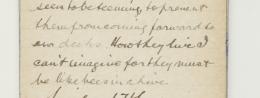 seem to be teeming to prevent
them from coming forward to
our decks. How they live I
can't imagine for they must
be like bees in a hive.